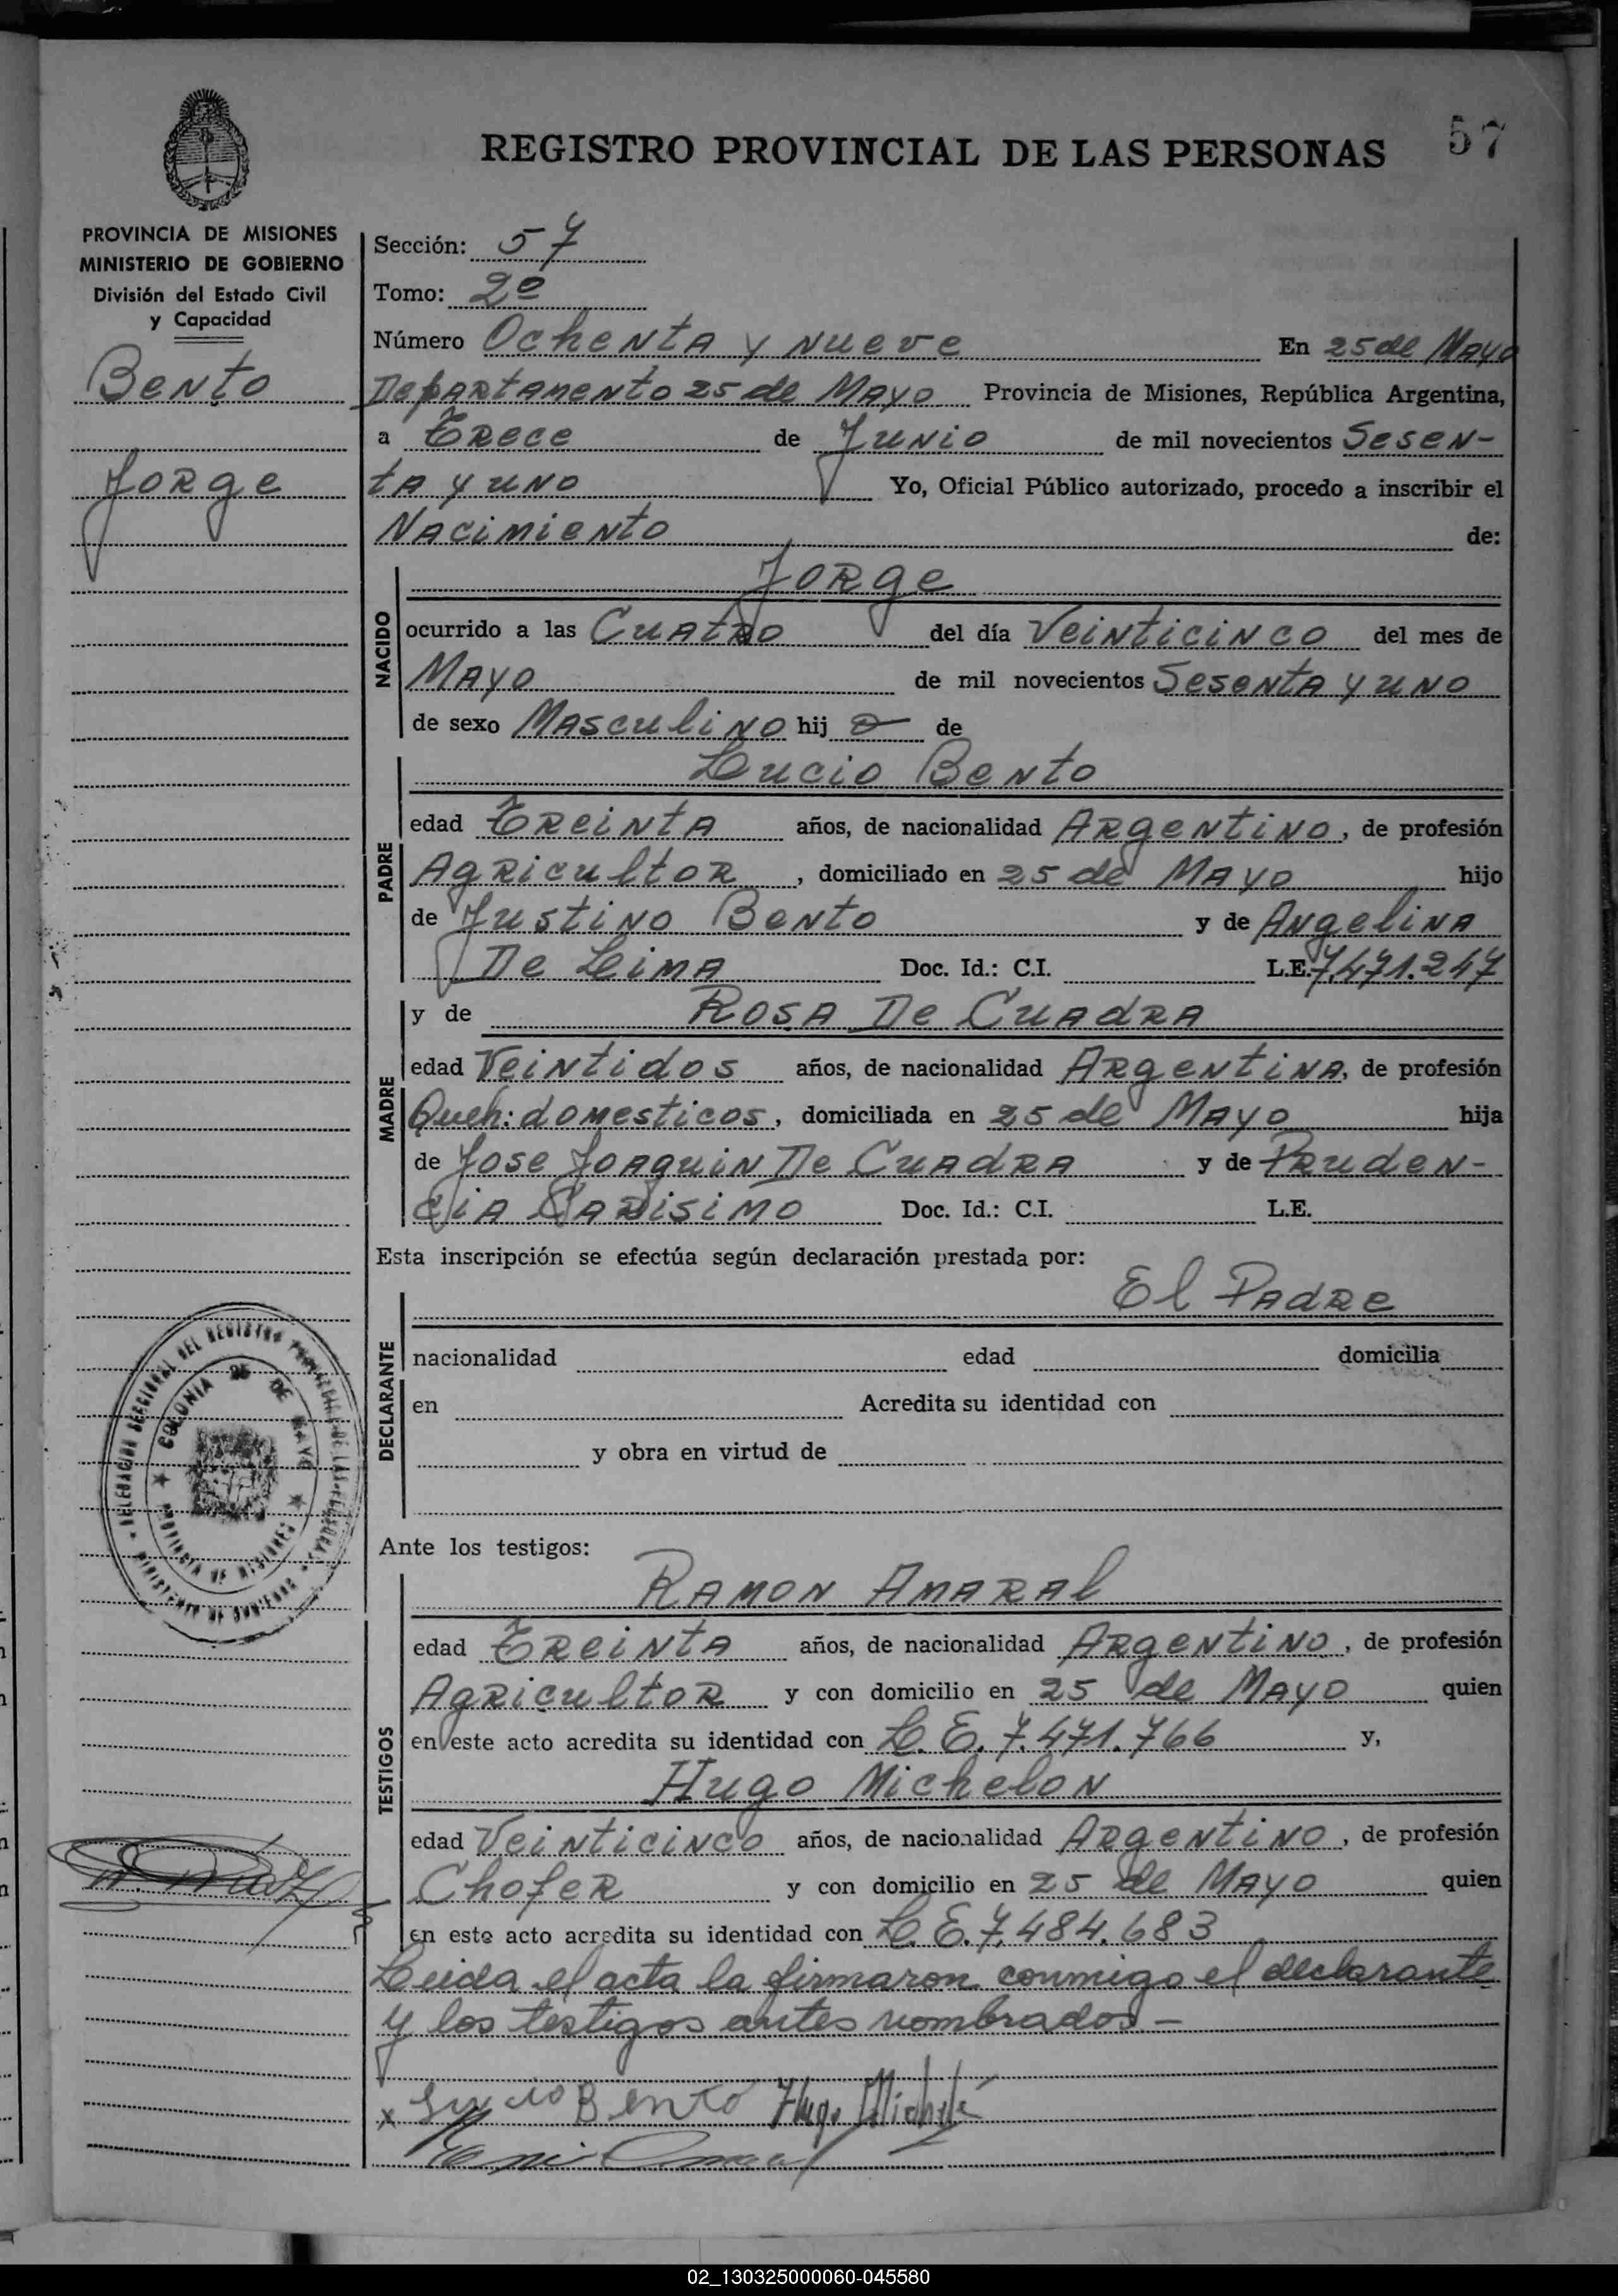 57
REGISTRO PROVINCIAL DE LAS PERSONAS
PROVINCIA DE MISIONES
MINISTERIO DE GOBIERNO
División del Estado Civil
y Capacidad
Bento
Jorge
Sección: 57
Tomo: 2º
Número Ochenta y nueve En 25 de Mayo
Departamento 25 de Mayo Provincia de Misiones, República Argentina,
a Trece de Junio de mil novecientos Sesen-
ta y uno Yo, Oficial Público autorizado, procedo a inscribir el
Nacimiento de:
NACIDO
Jorge
ocurrido a las Cuatro del día Veinticinco del mes de
Mayo de mil novecientos Sesenta y uno
de sexo Masculino hij o de
PADRE
Lucio Bento
edad Treinta años, de nacionalidad Argentino, de profesión
Agricultor, domiciliado en 25 de Mayo hijo
de Justino Bento y de Angelina
De Lima Doc. Id.: C.I. L.E. 7.471.247
MADRE
y de Rosa De Cuadra
edad Veintidos años, de nacionalidad Argentina, de profesión
Queh: domesticos, domiciliada en 25 de Mayo hija
de Jose Joaquin De Cuadra y de Pruden-
cia Doc. Id.: C.I. L.E.
Esta inscripción se efectúa según declaración prestada por:
DECLARANTE
El Padre
nacionalidad edad domicilia
en Acredita su identidad con
y obra en virtud de
DELEGACION SECCIONAL DEL REGISTRO PROVINCIAL DE LAS PERSONAS
MINISTERIO DE GOBIERNO
COLONIA 25 DE MAYO
PROVINCIA DE MISIONES
Ante los testigos:
TESTIGOS
Ramon Amaral
edad Treinta años, de nacionalidad Argentino, de profesión
Agricultor y con domicilio en 25 de Mayo quien
en este acto acredita su identidad con L.E. 7.471.766 y,
Hugo Michelon
edad Veinticinco años, de nacionalidad Argentino, de profesión
Chofer y con domicilio en 25 de Mayo quien
en este acto acredita su identidad con L.E. 7.484.683
Leida el acta la firmaron conmigo el declarante
y los testigos antes nombrados.-
x Lucio Bento Hugo
02_130325000060-045580